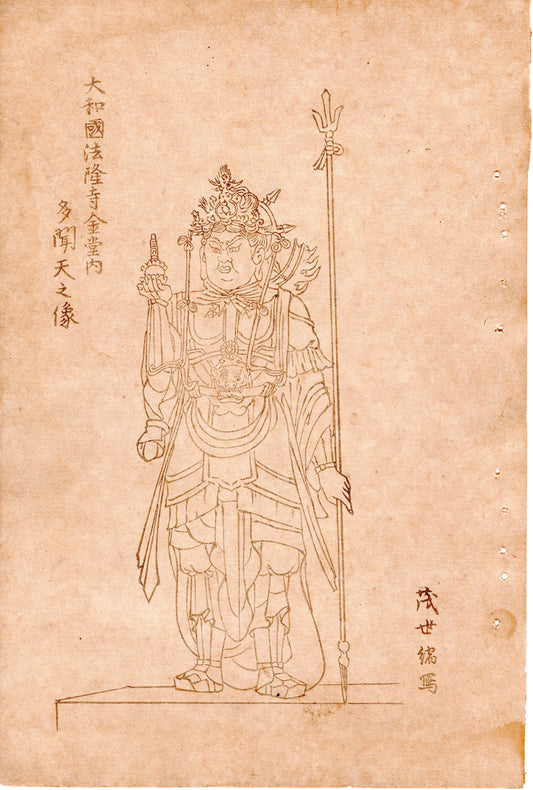 大和國法隆寺金堂内
多聞天之像
茂世縮写